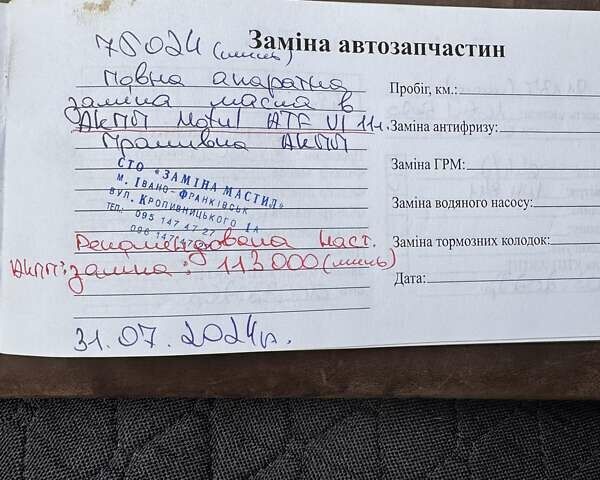 Заміна автозапчастин
75024 (миль)
Повна апаратна
заміна масла в
АКПП Motul ATF VI 11л.
Промивка АКПП
СТО «ЗАМІНА МАСТИЛ»
м. Івано-Франківськ
вул. Кропивницького 1А
тел.: 095 147 47 27
Рекомендована наст.
АКПП: заміна: 113000 (миль)
31.07.2024р.
Пробіг, км.:
Заміна антифризу:
Заміна ГРМ:
Заміна водяного насосу:
Заміна тормозних колодок:
Дата: